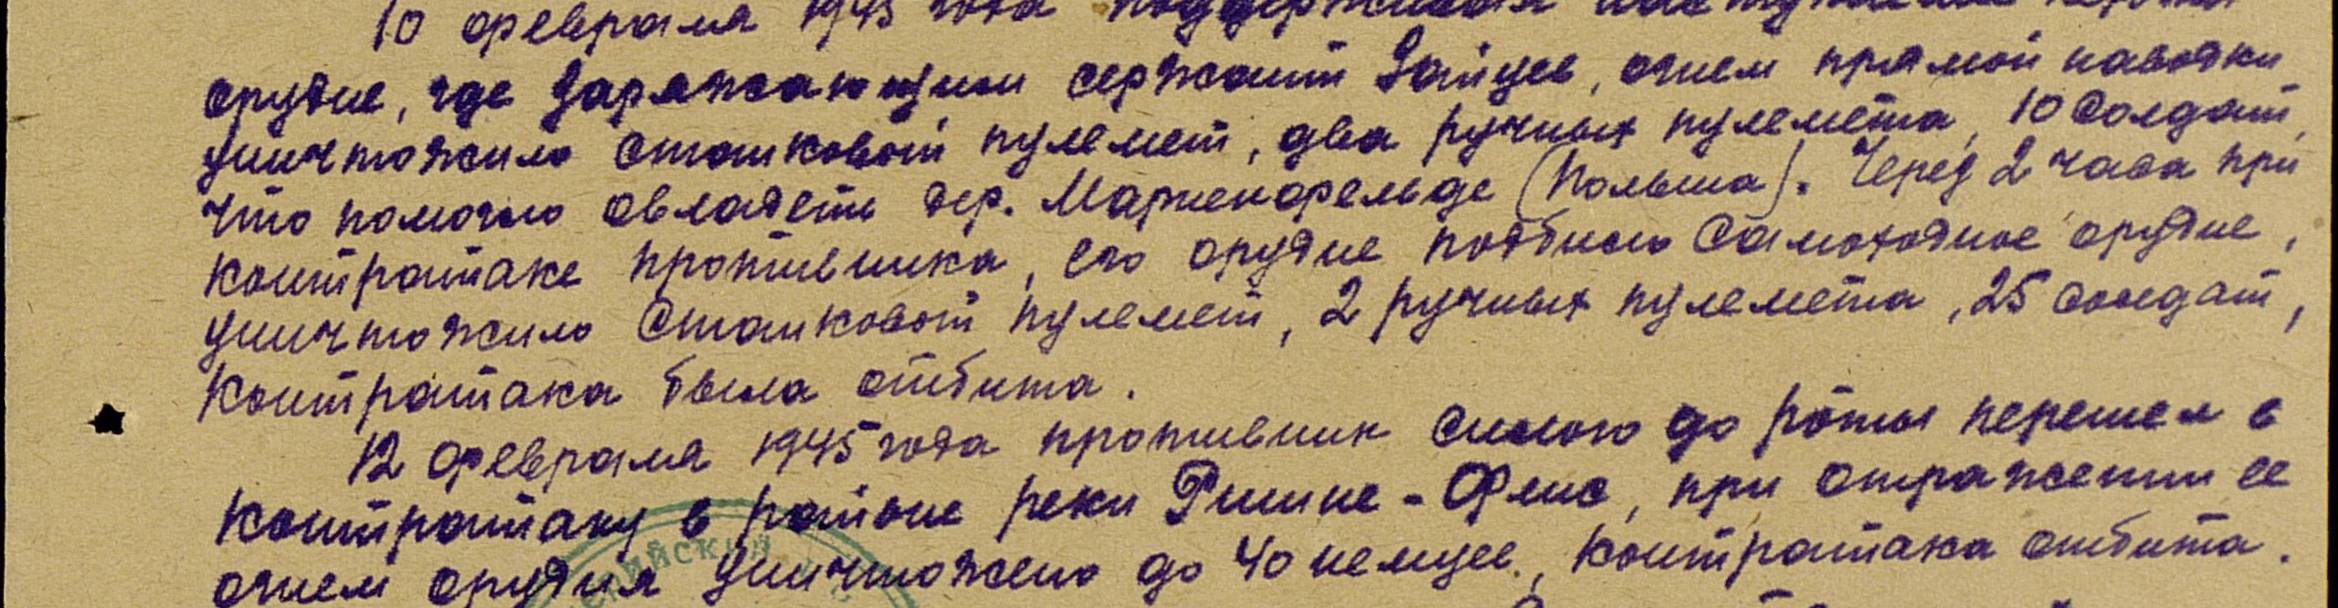 10 февраля 1945 года поддерживая наступление пехоты
орудие, где заряжающим сержант Зайцев, огнем прямой наводки
уничтожило станковый пулемет, два ручных пулемета, 10 солдат,
что помогло овладеть дер. Мариенфельде (Польша). Через 2 часа при
контратаке противника, его орудие подбило самоходное орудие,
уничтожило станковый пулемет, 2 ручных пулемета, 25 солдат,
контратака была отбита.
12 февраля 1945 года противник силою до роты перешел в
контратаку в районе реки Рише-Флис, при отражении ее
огнем орудия уничтожено до 40 немцев, контратака отбита.